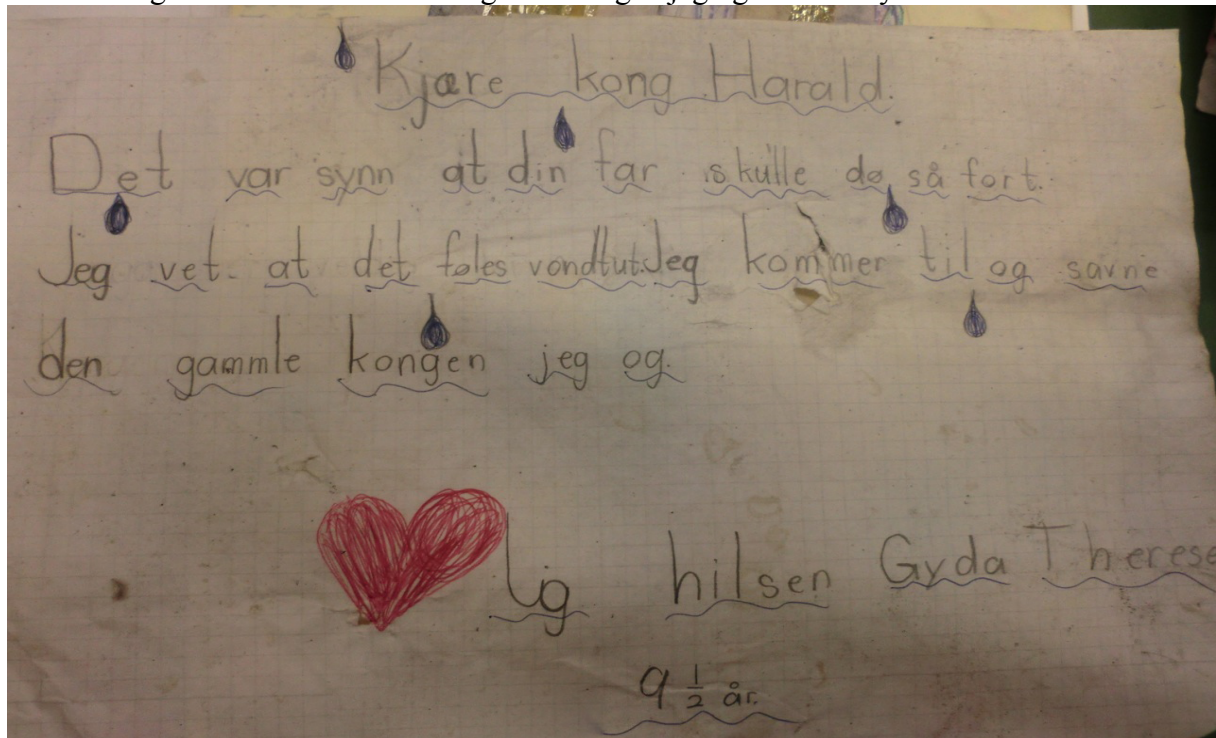 Kjære kong Harald.
Det var synn at din far skulle dø så fort.
Jeg vet at det føles vondtut. Jeg kommer til og savne
den gammle kongen jeg og.
lig hilsen Gyda Therese
9 1/2 år.